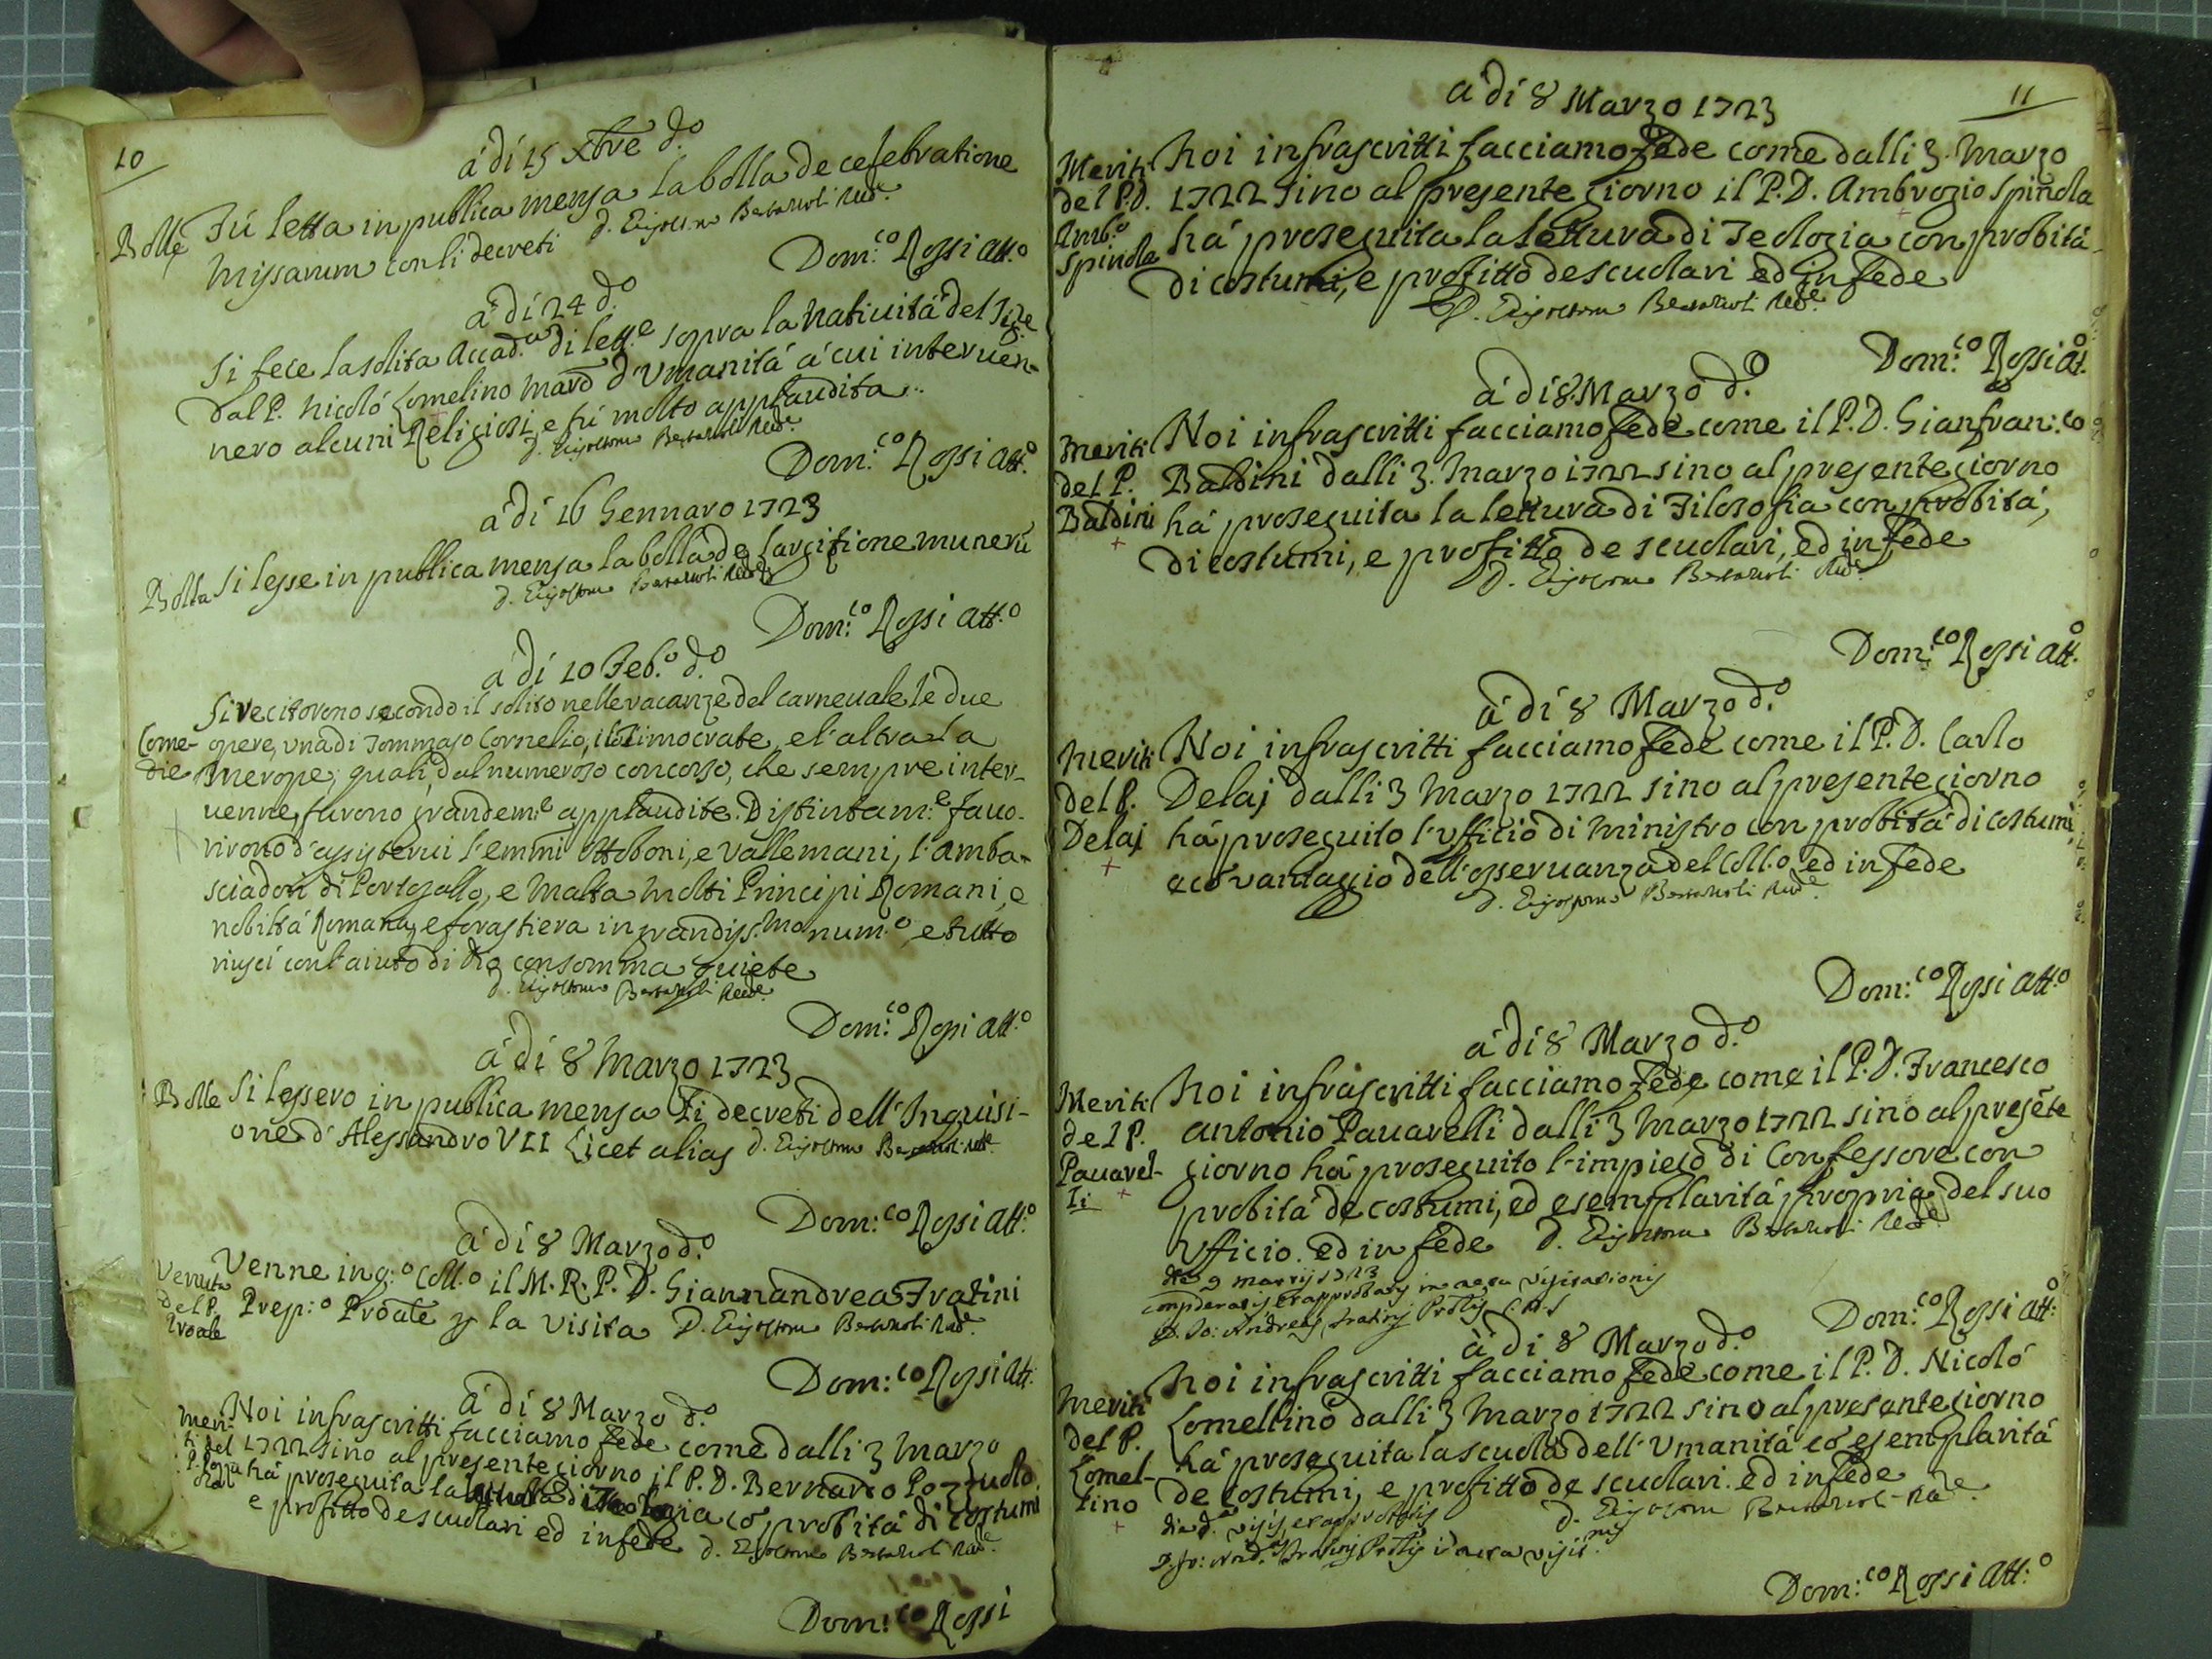 10
á dí 15 Xbre d.o
Bolle
Fú letta in publica mensa la bolla de celebratione
Missarum con li decreti D. Grisostomo Bertazzoli Ret.e
Dom:co Rossi Att.o
á dí 24 d.o
Si fece la solita Accad.a di lett.e sopra la Natiuitá del Sig.re
dal P. Nicoló Lomelino Maro d'Vmanitá á cui interuen-
nero alcuni Religiosi, e fú molto applaudita
Dom:co Rossi Att.o
á dí 16 Gennaro 1723
Bolla
Si lesse in publica mensa la bolla de Largitione munerū
Dom:co Rossi Att.o
á dí 10 Feb.o d.o
Come-
die
Si recitorono secondo il solito nelle vacanze del carneuale le due
opere, vna di Tommaso Cornelio, il Timocrate, e l'altra la
Merope; quali dal numeroso concorso, che sempre inter-
uenne, furono grandem.e applaudite. Distintam:e fauo-
rirono d'assisterui l'emmi Ottoboni, e Vallemani, l'Amba-
sciadori di Portogallo, e Malta molti Principi Romani, e
nobiltá Romana, e forastiera in grandiss.mo num.o, e tutto
riuscí con l'aiuto di Dio con somma quiete
Dom:co Rossi Att.o
á dí 8 Marzo 1723
Bolle
Si lessero in publica mensa Li decreti dell'Inquisi-
one d'Alessandro VII Licet alias
Dom:co Rossi Att.o
á dí 8 Marzo d.o
Venuta
del P.
Proāle
Venne in q:o Coll.o il M. R. P. D. Giannandrea Fratini
Prep:o Proāle p la visita
Dom:co Rossi Att.
Á dí 8 Marzo d.o
Meri-
ti del
Noi infrascritti facciamo fede come dalli 3 Marzo
1722 sino al presente giorno il P. D. Bernardo Pozzuolo
há proseguita la di Teologia có probitá di costumi
e profitto de scuolari ed in fede
Dom:co Rossi
11
á dí 8 Marzo 1723
Meriti
del P.D.
Amb.o
Spinola
Noi infrascritti facciamo fede come dalli 3. Marzo
1722 sino al presente giorno il P. D. Ambrogio Spinola
há proseguita la lettura di Teologia con probitá
di costumi, e profitto de scuolari ed in fede
Dom:co Rossi At.o
á dí 8. Marzo d.o
Meriti
del P.
Baldini
Noi infrascritti facciamo fede come il P. D. Gianfran:co
Baldini dalli 3. Marzo 1722 sino al presente giorno
há proseguita la lettura di Filosofia con probitá,
di costumi, e profitto de scuolari, ed in fede
Dom:co Rossi Att.o
á dí 8 Marzo d.o
Meriti
del P.
Delaj
Noi infrascritti facciamo fede come il P. D. Carlo
Delaj dalli 3 Marzo 1722 sino al presente giorno
há proseguito l'vfficio di Ministro con probitá di costumi,
e có vantaggio dell'osseruanza del Coll.o, ed in fede
Dom:co Rossi Att.o
á dí 8 Marzo d.o
Meriti
del P.
Pauarel-
li
Noi infrascritti facciamo fede come il P. D. Francesco
Antonio Pauarelli dalli 3 Marzo 1722 sino al presēte
giorno há proseguito l'impiego di Confessore con
probitá de costumi, ed esemplaritá propria del suo
Vfficio. ed in fede
die 9 martij 1723
consideratis et approbatis in actu visitationis
Dom:co Rossi Att.o
á dí 8 Marzo d.o
Meriti
del P.
Lomel-
lino
Noi infrascritti facciamo fede come il P. D. Nicoló
Lomellino dalli 3 Marzo 1722 sino al presente giorno
há proseguita la scuola dell'Vmanitá có esemplaritá
de costumi, e profitto de scuolari. ed in fede
die d.a visis, et approbatis
Dom:co Rossi Att.o